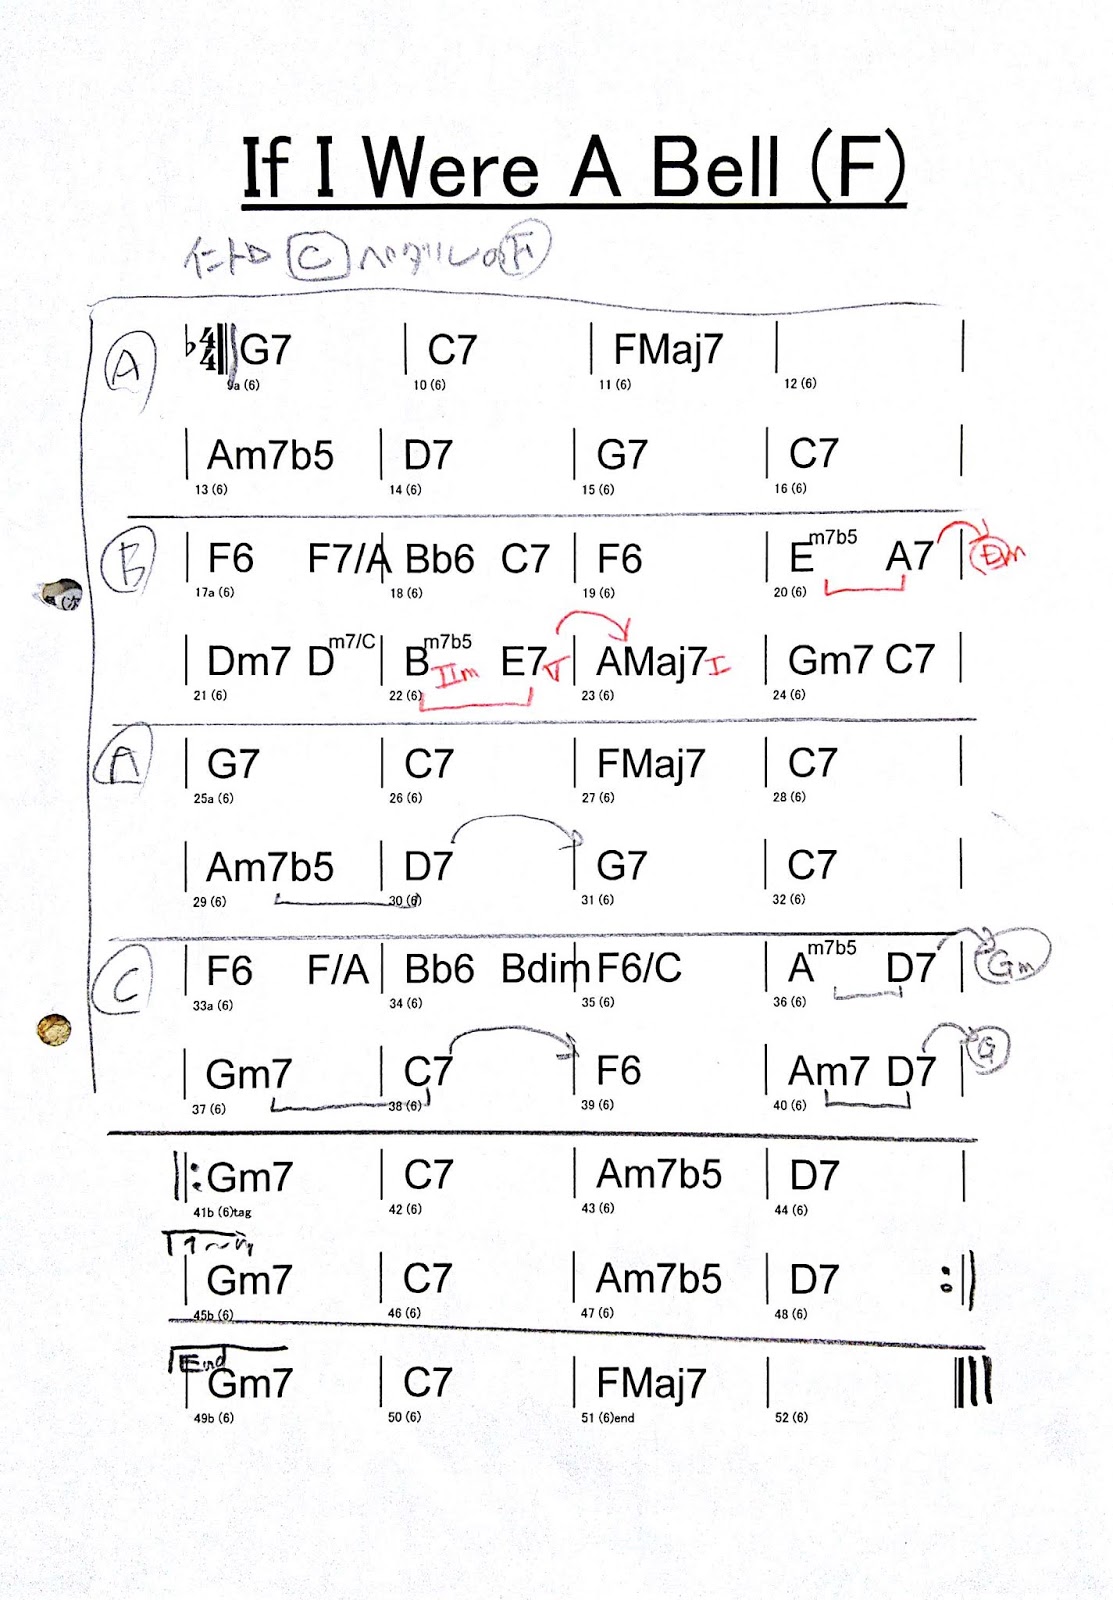 If I Were A Bell (F)
イントロ C ペダル
A
♭ 4/4 G7 C7 FMaj7
9a (6) 10 (6) 11 (6) 12 (6)
Am7b5 D7 G7 C7
13 (6) 14 (6) 15 (6) 16 (6)
B
F6 F7/A Bb6 C7 F6 Em7b5 A7 Dm
17a (6) 18 (6) 19 (6) 20 (6)
Dm7 Dm7/C Bm7b5 IIm E7 V AMaj7 I Gm7 C7
21 (6) 22 (6) 23 (6) 24 (6)
A
G7 C7 FMaj7 C7
25a (6) 26 (6) 27 (6) 28 (6)
Am7b5 D7 G7 C7
29 (6) 30 (6) 31 (6) 32 (6)
C
F6 F/A Bb6 Bdim F6/C Am7b5 D7 Gm
33a (6) 34 (6) 35 (6) 36 (6)
Gm7 C7 F6 Am7 D7 G
37 (6) 38 (6) 39 (6) 40 (6)
Gm7 C7 Am7b5 D7
41b (6)tag 42 (6) 43 (6) 44 (6)
Gm7 C7 Am7b5 D7
45b (6) 46 (6) 47 (6) 48 (6)
End
Gm7 C7 FMaj7
49b (6) 50 (6) 51 (6)end 52 (6)